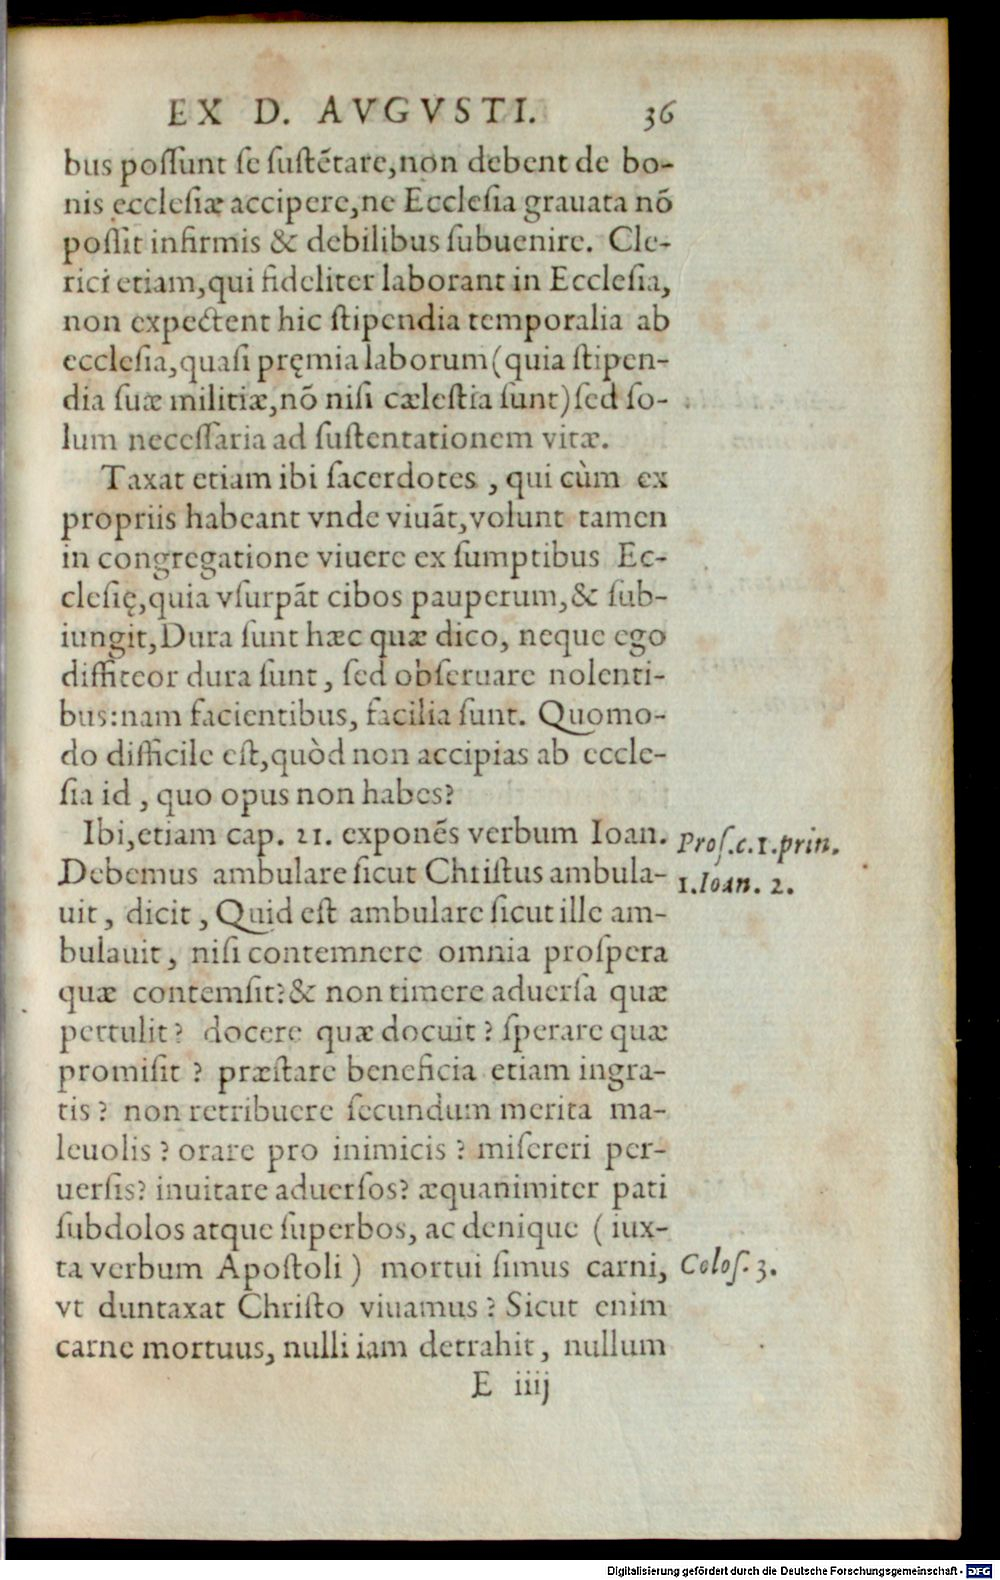 EX D. AVGVSTI. 36
bus possunt se sustẽtare, non debent de bo-
nis ecclesiæ accipere, ne Ecclesia grauata nõ
possit infirmis & debilibus subuenire. Cle-
rici etiam, qui fideliter laborant in Ecclesia,
non expectent hic stipendia temporalia ab
ecclesia, quasi pręmia laborum (quia stipen-
dia suæ militiæ, nõ nisi cælestia sunt) sed so-
lum necessaria ad sustentationem vitæ.
Taxat etiam ibi sacerdotes, qui cùm ex
propriis habeant vnde viuãt, volunt tamen
in congregatione viuere ex sumptibus Ec-
clesię, quia vsurpãt cibos pauperum, & sub-
iungit, Dura sunt hæc quæ dico, neque ego
diffiteor dura sunt, sed obseruare nolenti-
bus: nam facientibus, facilia sunt. Quomo-
do difficile est, quòd non accipias ab eccle-
sia id, quo opus non habes?
Ibi, etiam cap. 21. exponẽs verbum Ioan.
Pros. c. 1. prin.
Debemus ambulare sicut Christus ambula-
1. Ioan. 2.
uit, dicit, Quid est ambulare sicut ille am-
bulauit, nisi contemnere omnia prospera
quæ contemsit? & non timere aduersa quæ
pertulit? docere quæ docuit? sperare quæ
promisit? præstare beneficia etiam ingra-
tis? non retribuere secundum merita ma-
leuolis? orare pro inimicis? misereri per-
uersis? inuitare aduersos? æquanimiter pati
subdolos atque superbos, ac denique (iux-
ta verbum Apostoli) mortui simus carni,
Colos. 3.
vt duntaxat Christo viuamus? Sicut enim
carne mortuus, nulli iam detrahit, nullum
E iiij
Digitalisierung gefördert durch die Deutsche Forschungsgemeinschaft - DFG